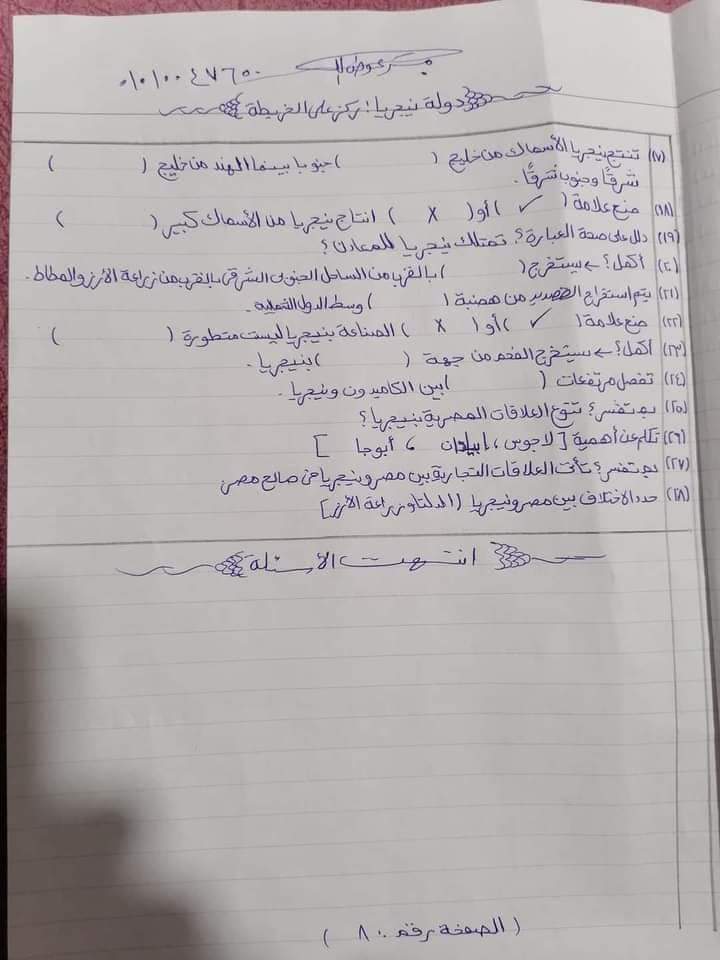 ٠١٠١٠٠٤٧٦٥٠
دولة نيجريا؛ ركز على الخريطة
(١٧) تنتج نيجريا الأسماك من خليج ( ) جنوبا بينما الهند من خليج ( )
شرقًا وجنوب شرقًا.
(١٨) ضع علامة ( ✓ ) أو ( X ) انتاج نيجريا من الأسماك كبير ( )
(١٩) دلل على صحة العبارة؟ تمتلك نيجريا للمعادن؟
(٢٠) أكمل؟ ← يستخرج ( ) بالقرب من الساحل الجنوبى الشرقى بالقرب من زراعة الأرز والمطاط.
(٢١) يتم استخراج القصدير من هضبة ( ) وسط الدول الشمالية.
(٢٢) ضع علامة ( ✓ ) أو ( X ) الصناعة بنيجريا ليست متطورة ( )
(٢٣) أكمل؟ ← يستخرج الفحم من جهة ( ) بنيجريا.
(٢٤) تفصل مرتفعات ( ) بين الكاميرون ونيجريا.
(٢٥) بم تفسر؟ تنوع العلاقات المصرية بنيجريا؟
(٢٦) تكلم عن أهمية [ لاجوس، ابيادان ، أبوجا ]
(٢٧) بم تفسر؟ تأتى العلاقات التجارية بين مصر ونيجريا فى صالح مصر
(٢٨) حدد الاختلاف بين مصر ونيجريا (الدلتا وزراعة الأرز]
انتهت الأسئلة
( الصفحة رقم ٨٠ )